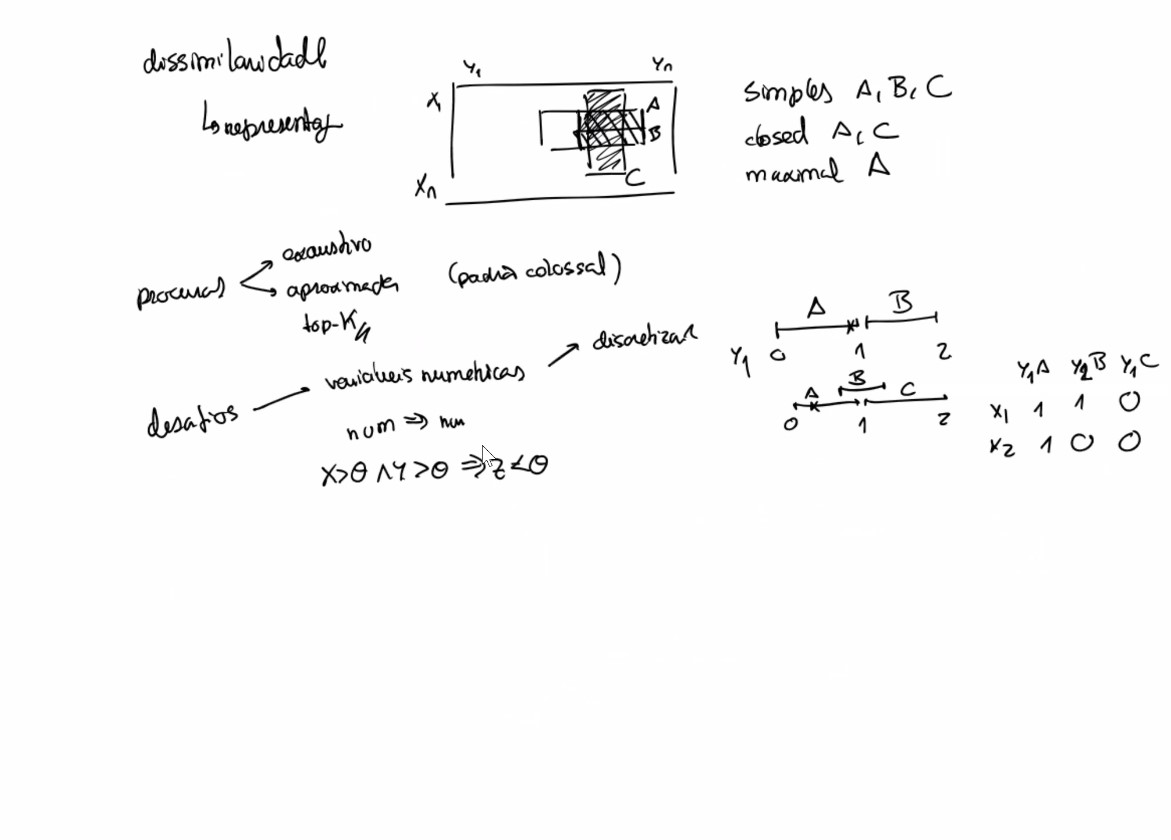 dissimilaridade
↳ representaç
Y1 Yn
X1
Xn
A
B
C
simples A, B, C
closed A, C
maximal A
procuras
exaustivo
aproximada
top-K
(padrão colossal)
desafios
variáveis numéricas
discretizar
num ⇒ num
X>θ ∧ Y>θ ⇒ Z<θ
A B
Y1 0 1 2
A B C
0 1 2
Y1A Y2B Y1C
X1 1 1 0
X2 1 0 0